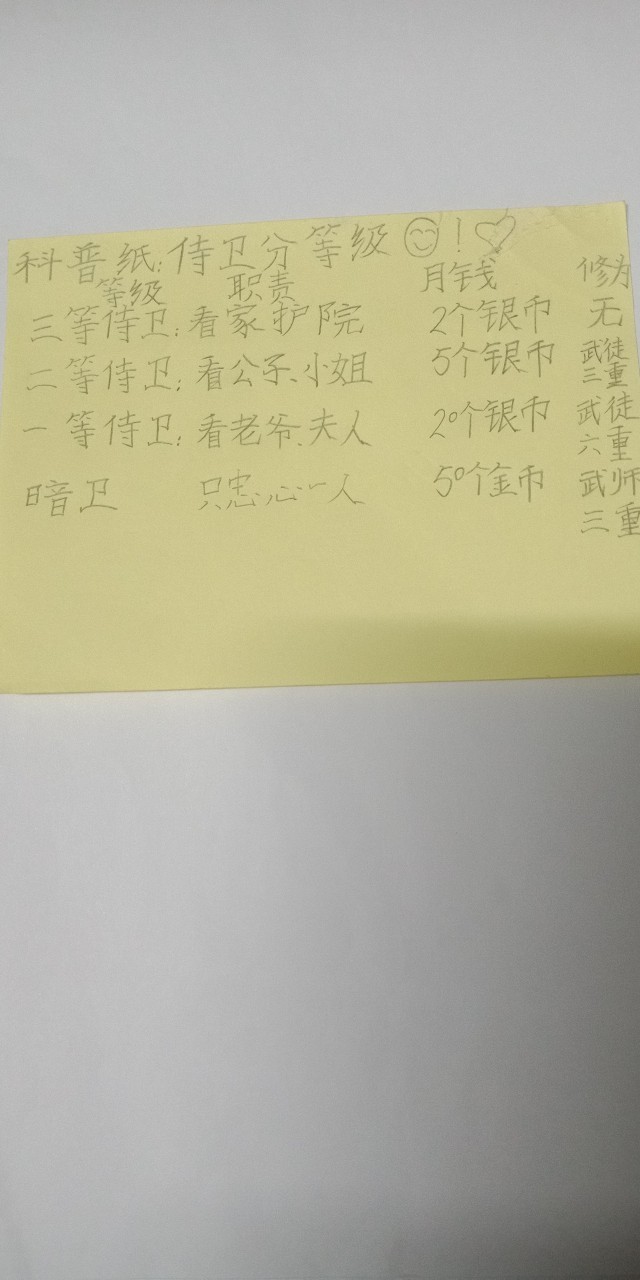 科普纸:侍卫分等级!
等级 职责 月钱 修为
三等侍卫:看家护院 2个银币 无
二等侍卫:看公子、小姐 5个银币 武徒三重
一等侍卫:看老爷、夫人 20个银币 武徒六重
暗卫 只忠心一人 50个金币 武师三重